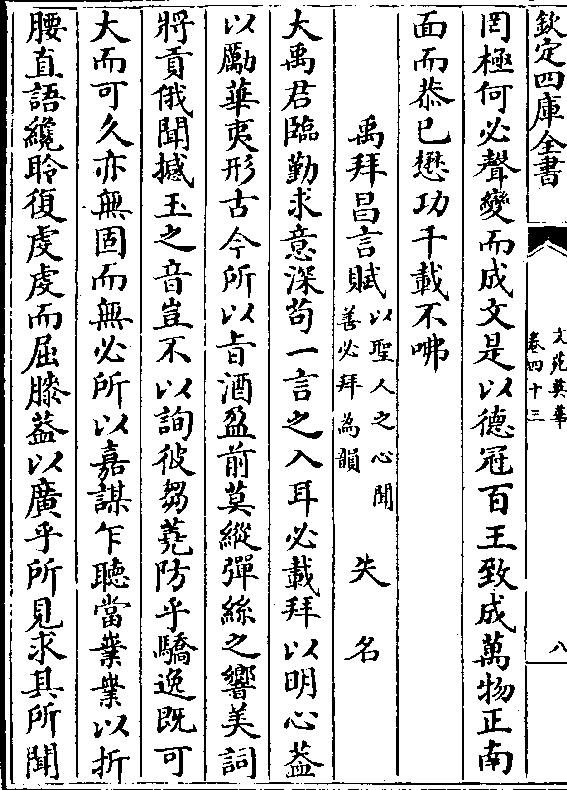 欽定四庫全書
文苑英華
卷四十三
八
罔極何必聲變而成文是以德冠百王致成萬物正南
面而恭已懋功千載不咈
禹拜昌言賦
以聖人之心聞
善必拜為韻
失名
大禹君臨勤求意深苟一言之入耳必載拜以明心蓋
以勵華夷形古今所以旨酒盈前莫縱彈絲之響美詞
將貢俄聞撼玉之音豈不以詢彼芻蕘防乎驕逸既可
大而可久亦無固而無必所以嘉謀乍聽當業業以折
腰直語纔聆復虔虔而屈膝蓋以廣乎所見求其所聞